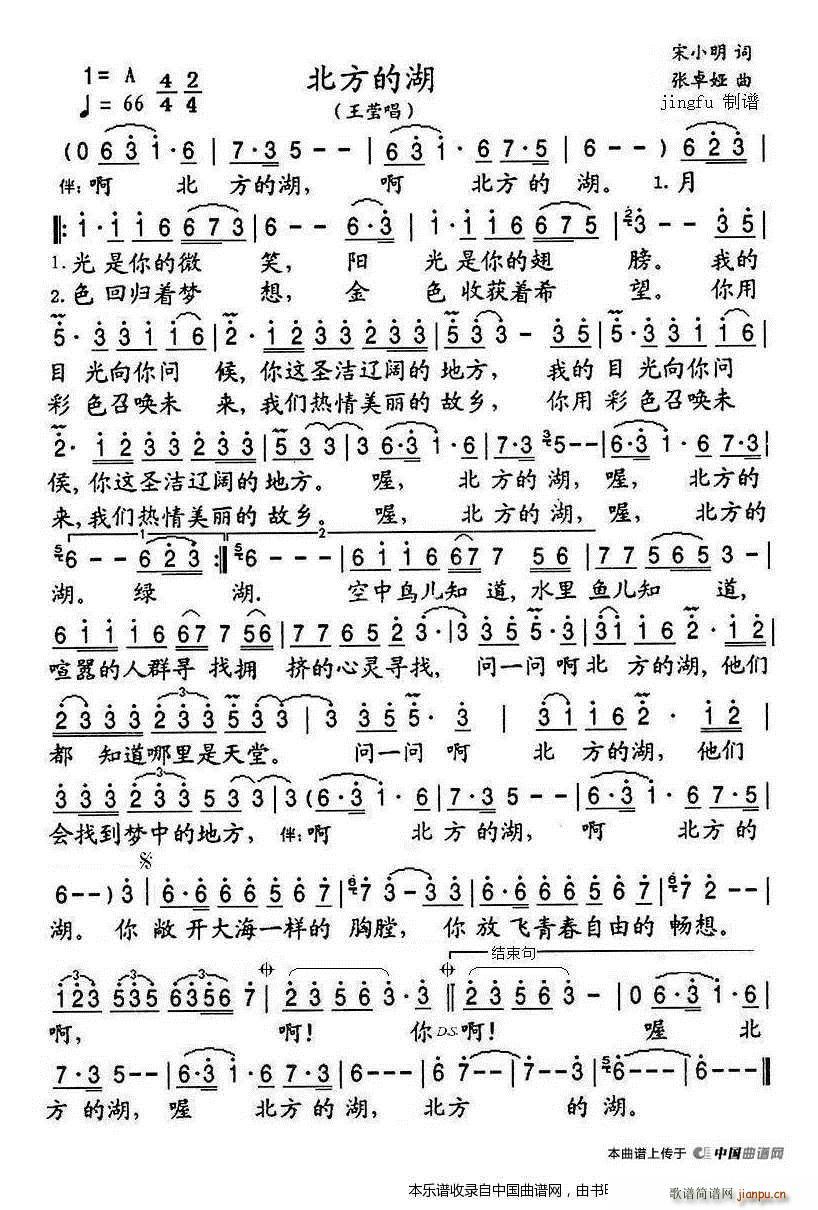 宋小明 词
1= A 4/4 2/4 北方的湖 张卓娅 曲
♩= 66 (王莹唱) jingfu 制谱
(0 6 3 1·6 | 7·3 5 - - | 6 3 1·6 7·5 | 6 - - ) 6 2 3 |
伴: 啊 北 方的湖, 啊 北方 的 湖。 1.月
1·1 1 6 6 7 3 | 6 - - 6·3 | 1·1 1 6 6 7 5 | 3 - - 3 5 |
1.光 是你的微 笑, 阳 光 是你的翅 膀。 我的
2.色 回归着梦 想, 金 色 收获着希 望。 你用
5·3 3 1 1 1 6 | 2·1 2 3 3 2 3 3 | 5 5 3 - 3 5 | 5·3 3 1 1 1 6 |
目 光向你问 候,你这圣洁辽阔的 地方, 我的 目 光向你问
彩 色召唤未 来,我们热情美丽的 故乡, 你用 彩 色召唤未
2·1 2 3 3 2 3 3 | 5 5 3 3 | 3 6·3 1·6 | 7·3 5 - - | 6·3 1·6 7·3 |
候,你这圣洁辽阔的 地方。 喔, 北 方的 湖,喔, 北方的
来,我们热情美丽的 故乡。 喔, 北 方的 湖,喔, 北方的
1 2
6 - - 6 2 3 :| 6 - - | 6 1 1 6 6 7 7 5 6 | 7 7 5 5 6 6 7 |
湖。 绿 湖. 空中鸟儿知 道,水里 鱼儿知 道,
6 1 1 1 6 6 7 7 5 6 | 7 7 6 5 2 3· | 3 3 5 5·3 | 3 1 1 6 2·1 2 |
喧嚣的人群寻 找拥 挤的心灵寻找, 问一问 啊北 方的湖,他们
2 3 3 3 2 3 2 3 5 3 3 | 3 3 5 5·3 | 3 1 1 6 2·1 2 |
都 知道哪里是天堂。 问一问 啊 北 方的湖, 他们
3 3 3 3 2 3 2 5 3 3 | 3 (6·3 1·6 | 7·3 5 - - | 6·3 1·6 7 5 |
会找到梦中的地方, 伴:啊 北 方 的湖, 啊 北方 的
6 - - ) 3 | 6·6 6 6 5 6 7 | 7 3 - 3 3 | 6·6 6 6 5 6 7 | 7 2 - - |
湖。 你 敞 开大海一样的 胸膛, 你 放 飞青春自由的 畅想。
结束句
1 2 3 5 3 5 6 3 5 6 7 | 2 3 5 6 3 3·3 | 2 3 5 6 3 - | 0 6·3 1·6 |
啊, 啊! 你 D.S. 啊! 喔 北
7·3 5 - - | 6·3 1·6 7·3 | 5 - - 6·1 | 6 7 - - | 7 5 - - | 6 - - | 6 - - |
方 的湖, 喔 北方 的 湖, 北方 的 湖。
本曲谱上传于 中国曲谱网
本乐谱收录自中国曲谱网，由书
歌谱简谱网
jianpu.cn